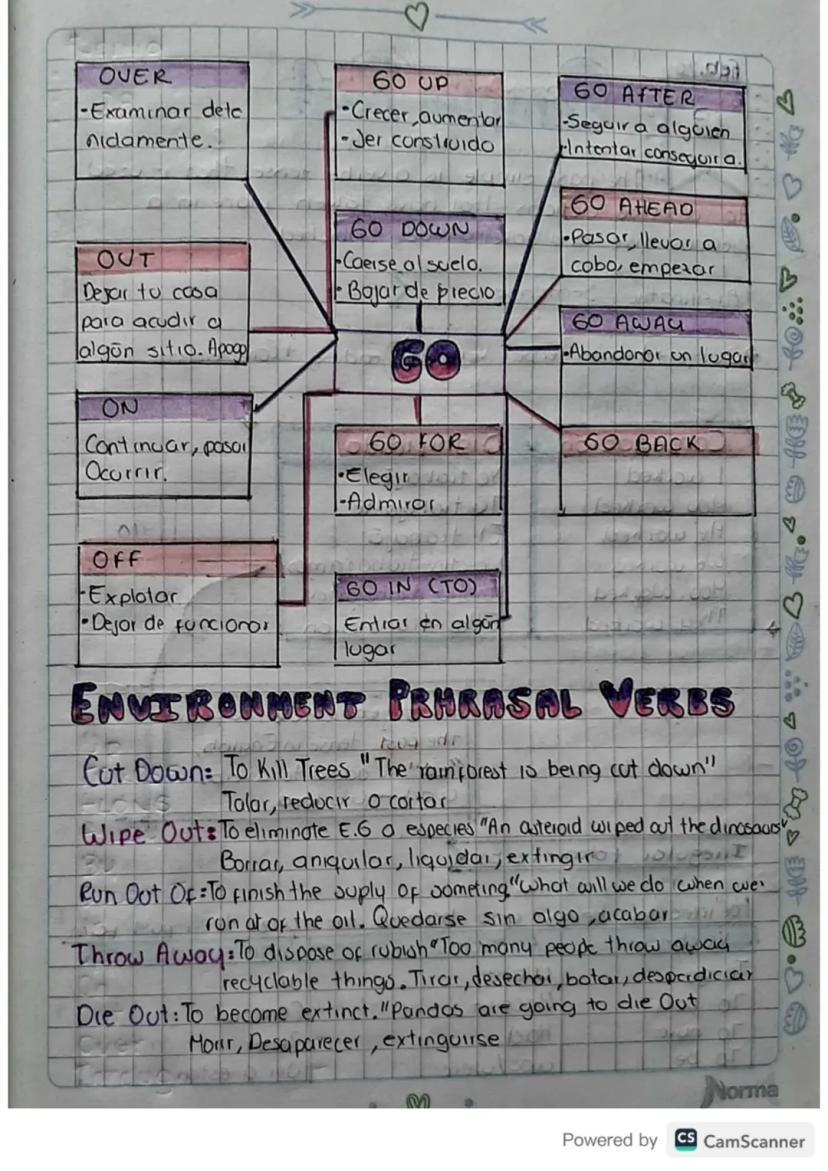 OVER
-Examinar dete
nidamente.
OUT
Dejar tu casa
para acudir a
algún sitio. Apaga
ON
Continuar, pasar
Ocurrir.
OFF
-Explotar
•Dejar de funcionar
GO UP
•Crecer, aumentar
-Ser construido
GO DOWN
•Caerse al suelo.
•Bajar de precio
GO
GO FOR
•Elegir
-Admirar
GO IN (TO)
Entrar en algún
lugar
GO AFTER
-Seguir a alguien
-Intentar conseguir a.
GO AHEAD
•Pasar, llevar a
cabo, empezar
GO AWAY
-Abandonar un lugar
GO BACK
ENVIRONMENT PRHRASAL VERBS
Cut Down: To Kill Trees "The rainforest is being cut down"
Talar, reducir o cortar
Wipe Out: To eliminate E.G a especies "An asteroid wiped out the dinosaurs"
Borrar, aniquilar, liquidar, extingir
Run Out Of: To finish the suply of someting "what will we do when we
run at of the oil. Quedarse sin algo, acabar
Throw Away: To dispose of rubish "Too many people throw away
recyclable things. Tirar, desechar, botar, desperdiciar
Die Out: To become extinct. "Pandas are going to die Out
Morir, Desaparecer, extinguirse
Norma
Powered by CS CamScanner